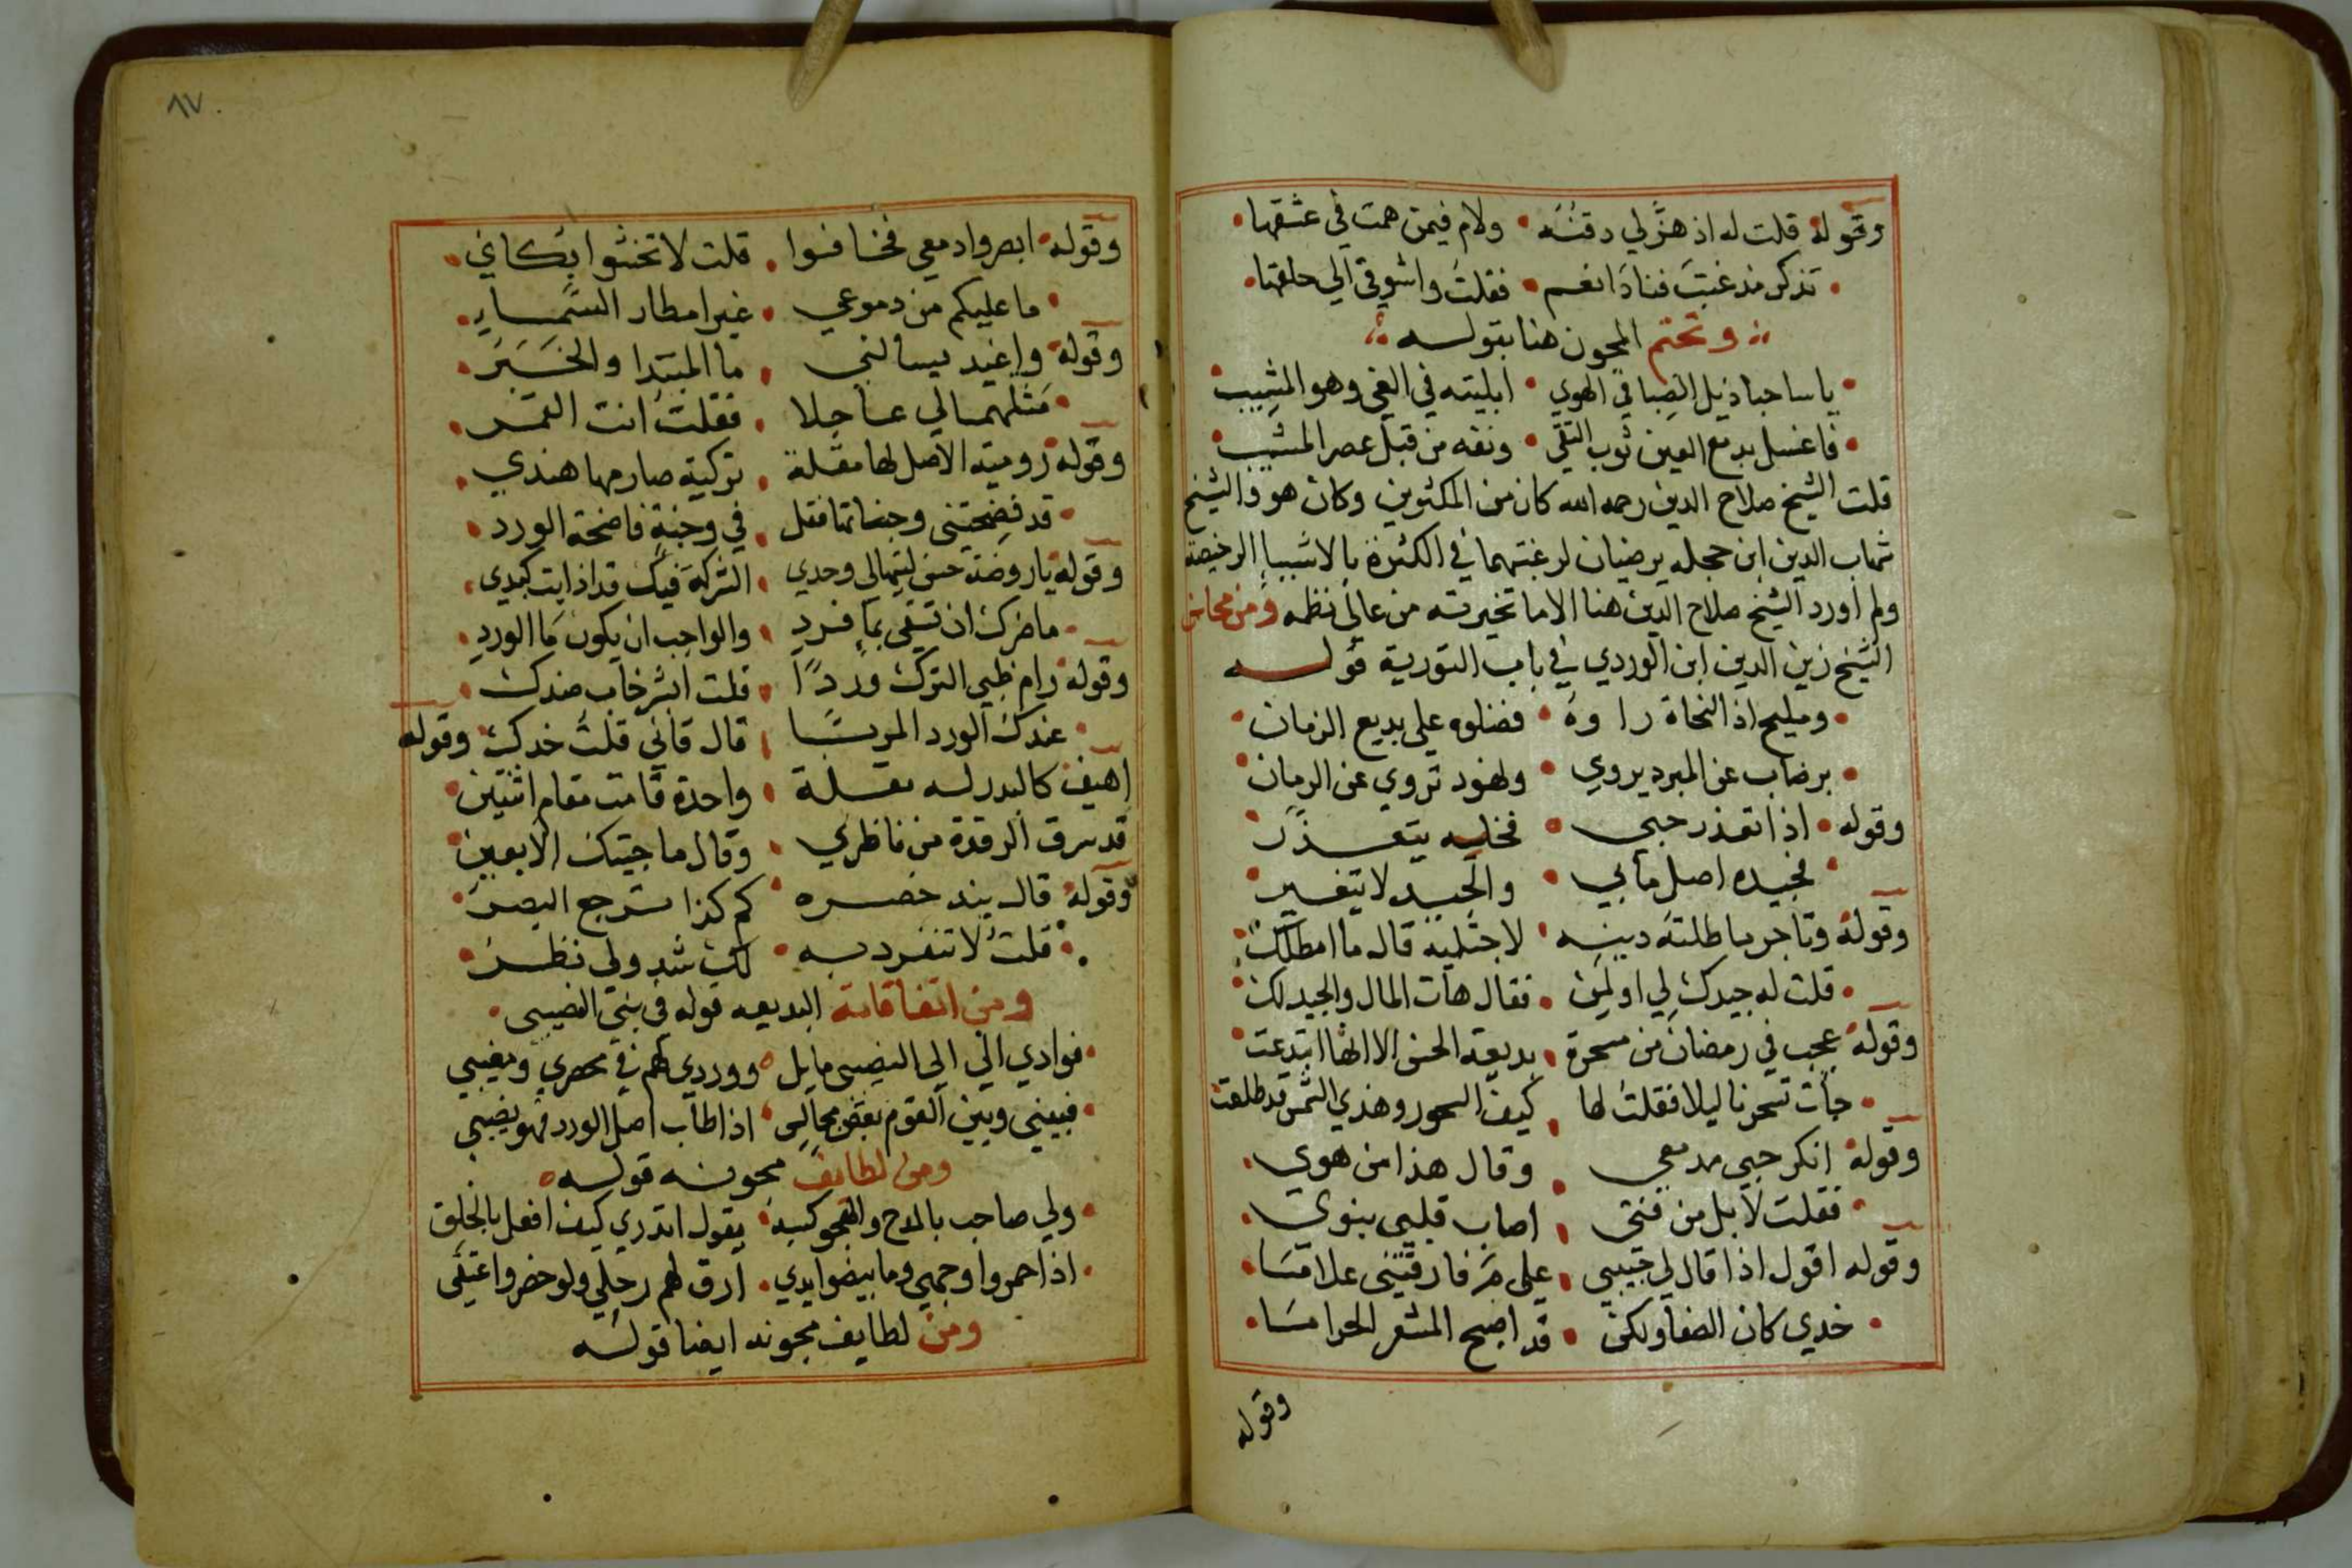 وقوله قلت له اذ هزّ لي دقنه • ولام فيمن همت في عشقها •
• تذكر مذ غبت فنادا نعم • فقلت واشوقي الي حلقها •
ونختم المجون هنا بقوله
• يا ساحبا ذيل الصبا في الهوي • ابليته في الغي وهو القشيب •
• فاغسل بدمع العين ثوب التقي • ونقه من قبل عصر المشيب •
قلت الشيخ صلاح الدين رحمه الله كان من المكثرين وكان هو والشيخ
شهاب الدين ابن حجله يرضيان لرغبتهما في الكثرة بالاشيا الرخيصة
ولم اورد الشيخ صلاح الدين هنا الا ما تخيرته من عالي نظمه ومن محاسن
الشيخ زين الدين ابن الوردي في باب التورية قوله
• ومليح اذا النحاة راوه • فضلوه علي بديع الزمان •
• برضاب عن المبرد يروي • ونهود تروي عن الرمان •
وقوله • اذا تعذر حبي • فخليه يتعذر •
• فجيده اصل ما بي • والجيد لا يتغير •
وقوله وتاجر ماطلته دينه • لاجتليه قال ما امطلك •
• قلت له جيدك لي او لمن • فقال هات المال والجيد لك •
وقوله عجب في رمضان من مسحرة • بديعة الحسن الا انها ابتدعت •
• جأت تسحرنا ليلا فقلت لها • كيف السحور وهذي الشمس قد طلعت
وقوله انكر حبي مدمعي • وقال هذا من هوي •
• فقلت لا بل من فتي • اصاب قلبي بنوي •
وقوله اقول اذا قال لي حبيبي • علي مَ فارقتني علاما •
• خدي كان الصفا ولكن • قد اصبح المشعر الحراما •
وقوله
٨٧
وقوله • ابصروا دمعي فخافوا • قلت لا تخشوا بكائي •
• ما عليكم من دموعي • غير امطار السماء •
وقوله واغيد يسالني • ما المبتدا والخبر •
• مثلهما لي عاجلا • فقلت انت القمر •
وقوله رومية الاصل لها مقلة • تركية صارمها هندي •
• قد فضحتني وجناتها فقل • في وجنة فاضحة الورد •
وقوله يا روضة حسن ليتها لي وحدي • الشركة فيك قد اذابت كبدي •
• ما ضرك ان تسقي بما فرد • والواجب ان يكون ما الورد •
وقوله رام ظبي الترك وردًا • قلت ابشر خاب ضدك •
• عندك الورد المربا • قال قاني قلت خدك • وقوله
اهيف كالبدر له مقلة • واحدة قامت مقام اثنتين •
قد سرق الرقدة من ناظري • وقال ما جيتك الا بعين •
وقوله قال بند خصره • كم كذا ترجع البصر •
• قلت لا تنفرد به • لك شد ولي نظر •
ومن اتفاقاته البديعه قوله في بني النصيبي •
• فوادي الي ال النصيبي مايل • ووردي لهم في محضري ومغيبي
• فبيني وبين القوم بعض مجالس • اذا طاب اصل الورد فهو نصيبي
ومن لطايف مجونه قوله
• ولي صاحب بالمدح والهجو كسبه • يقول اتدري كيف افعل بالخلق
• اذا حمروا وجهي وما بيضوا يدي • ازرق لهم رجلي ولو خضروا عنقي
ومن لطايف مجونه ايضا قوله